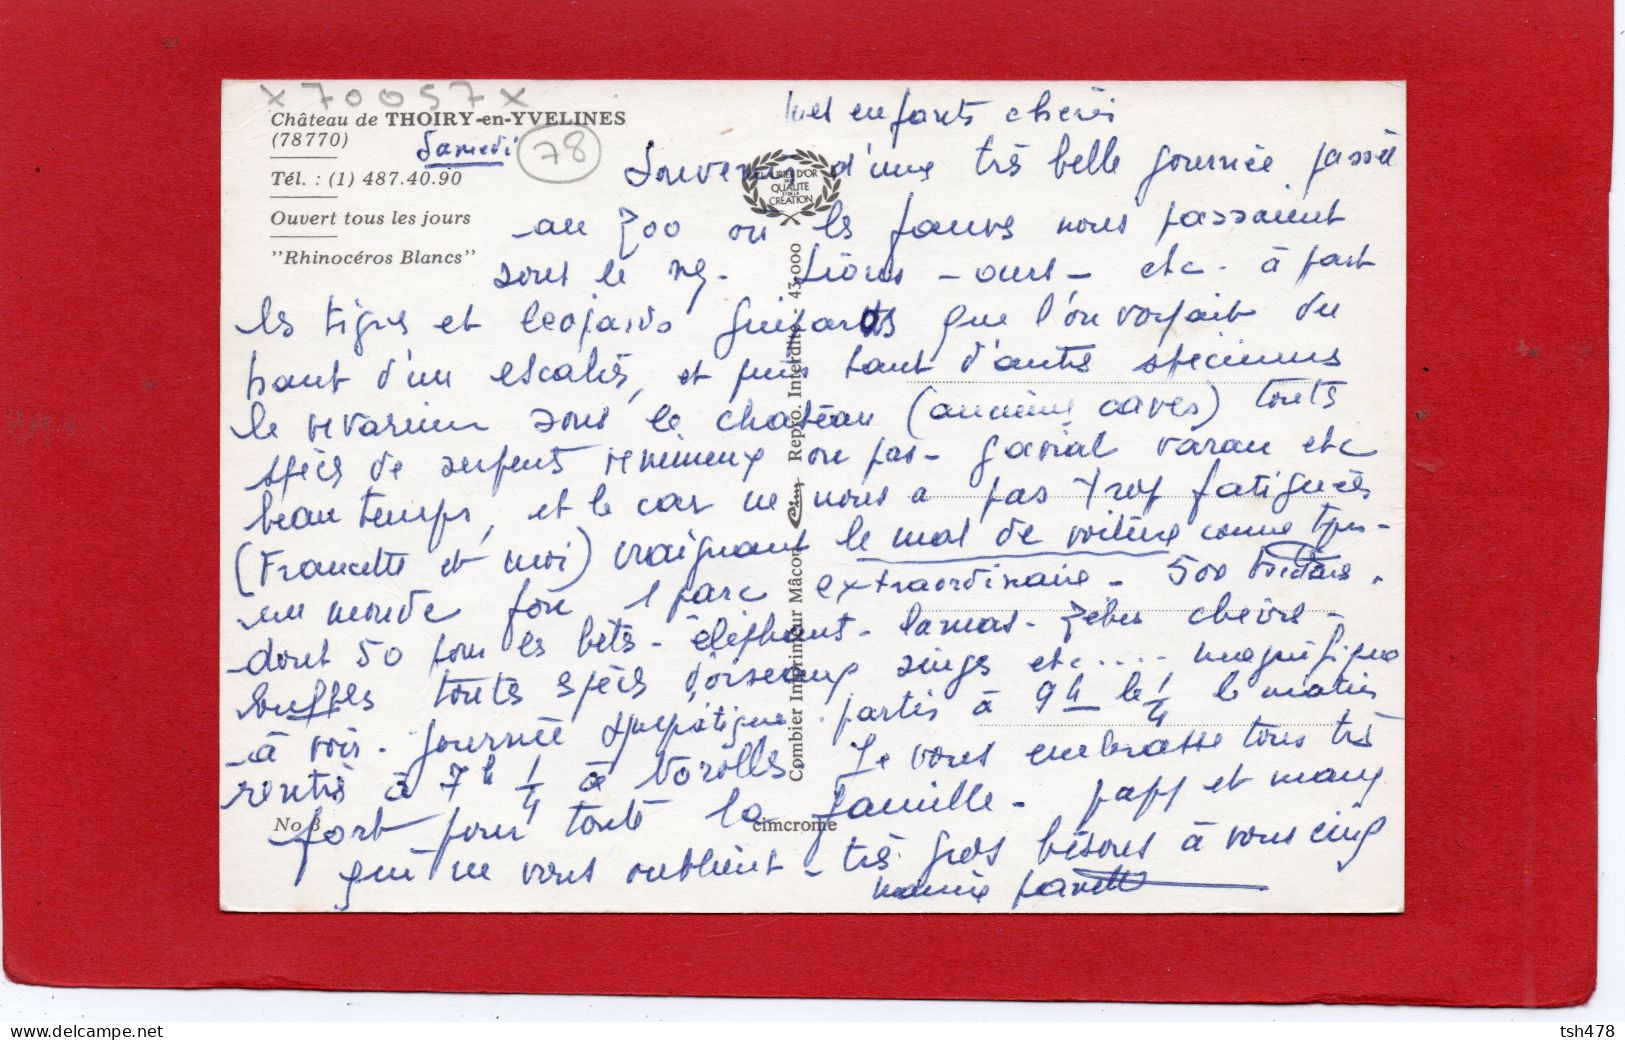 x 70057 x
Château de THOIRY-en-YVELINES
(78770)
Samedi
78
Tél. : (1) 487.40.90
Ouvert tous les jours
"Rhinocéros Blancs"
LAURIER D'OR
DE LA
QUALITÉ
ET DE LA
CRÉATION
Combier Imprimeur Mâcon Cim Repro. Interdite - 43.000
No 8
cimcrome
Mes enfants chéris
Souvenir d'une très belle journée passée
au zoo ou les fauves nous passaient
sous le nez. Lions - ours - etc. à part
les tigres et léopards guépards que l'on voyait du
haut d'un escalier, et puis tant d'autres spécimens
le vivarium sous le chateau (anciennes caves) toutes
spèces de serpents venimeux ou pas - gavial varan etc
beau temps, et le car ne nous a pas trop fatiguées
(Francette et moi) craignant le mal de voiture comme
un monde fou 1 parc extraordinaire - 500 hectares.
dont 50 pour les bêtes - éléphant - lamas - zébus chèvres -
buffles toutes spèces d'oiseaux singes etc.... magnifique
à voir. journée sympatique. partis à 9h le 1/4 le matin
rentrés à 7h 1/4 à Je vous embrasse tous très
fort pour toute la famille - papy et mamy
qui ne vous oublient - très gros bisous à vous cinq
mamie
tsh478